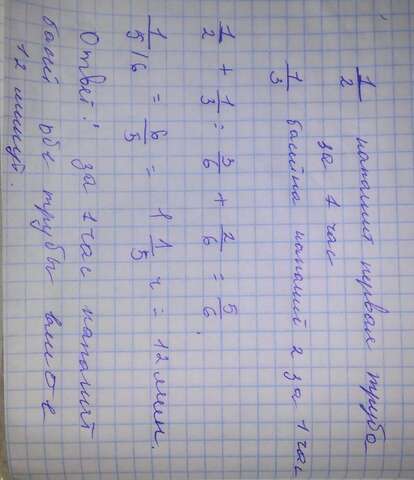 1/2 наполнит первая труба
за 1 час
1/3 басейна наполнит 2 за 1 час
1/2 + 1/3 = 3/6 + 2/6 = 5/6.
1/5/6 = 6/5 = 1 1/5 ч = 12 мин.
Ответ: за 1 час наполнят
басей обе трубы вместе
12 минут.